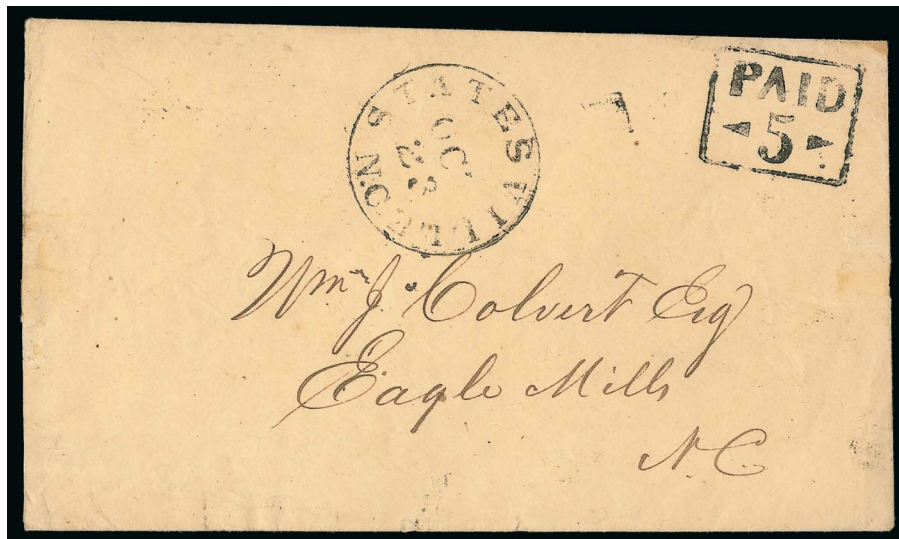 STATESVILLE N.C.
OC
22
PAID
5
Wm J. Colvert Esq
Eagle Mills
N.C.